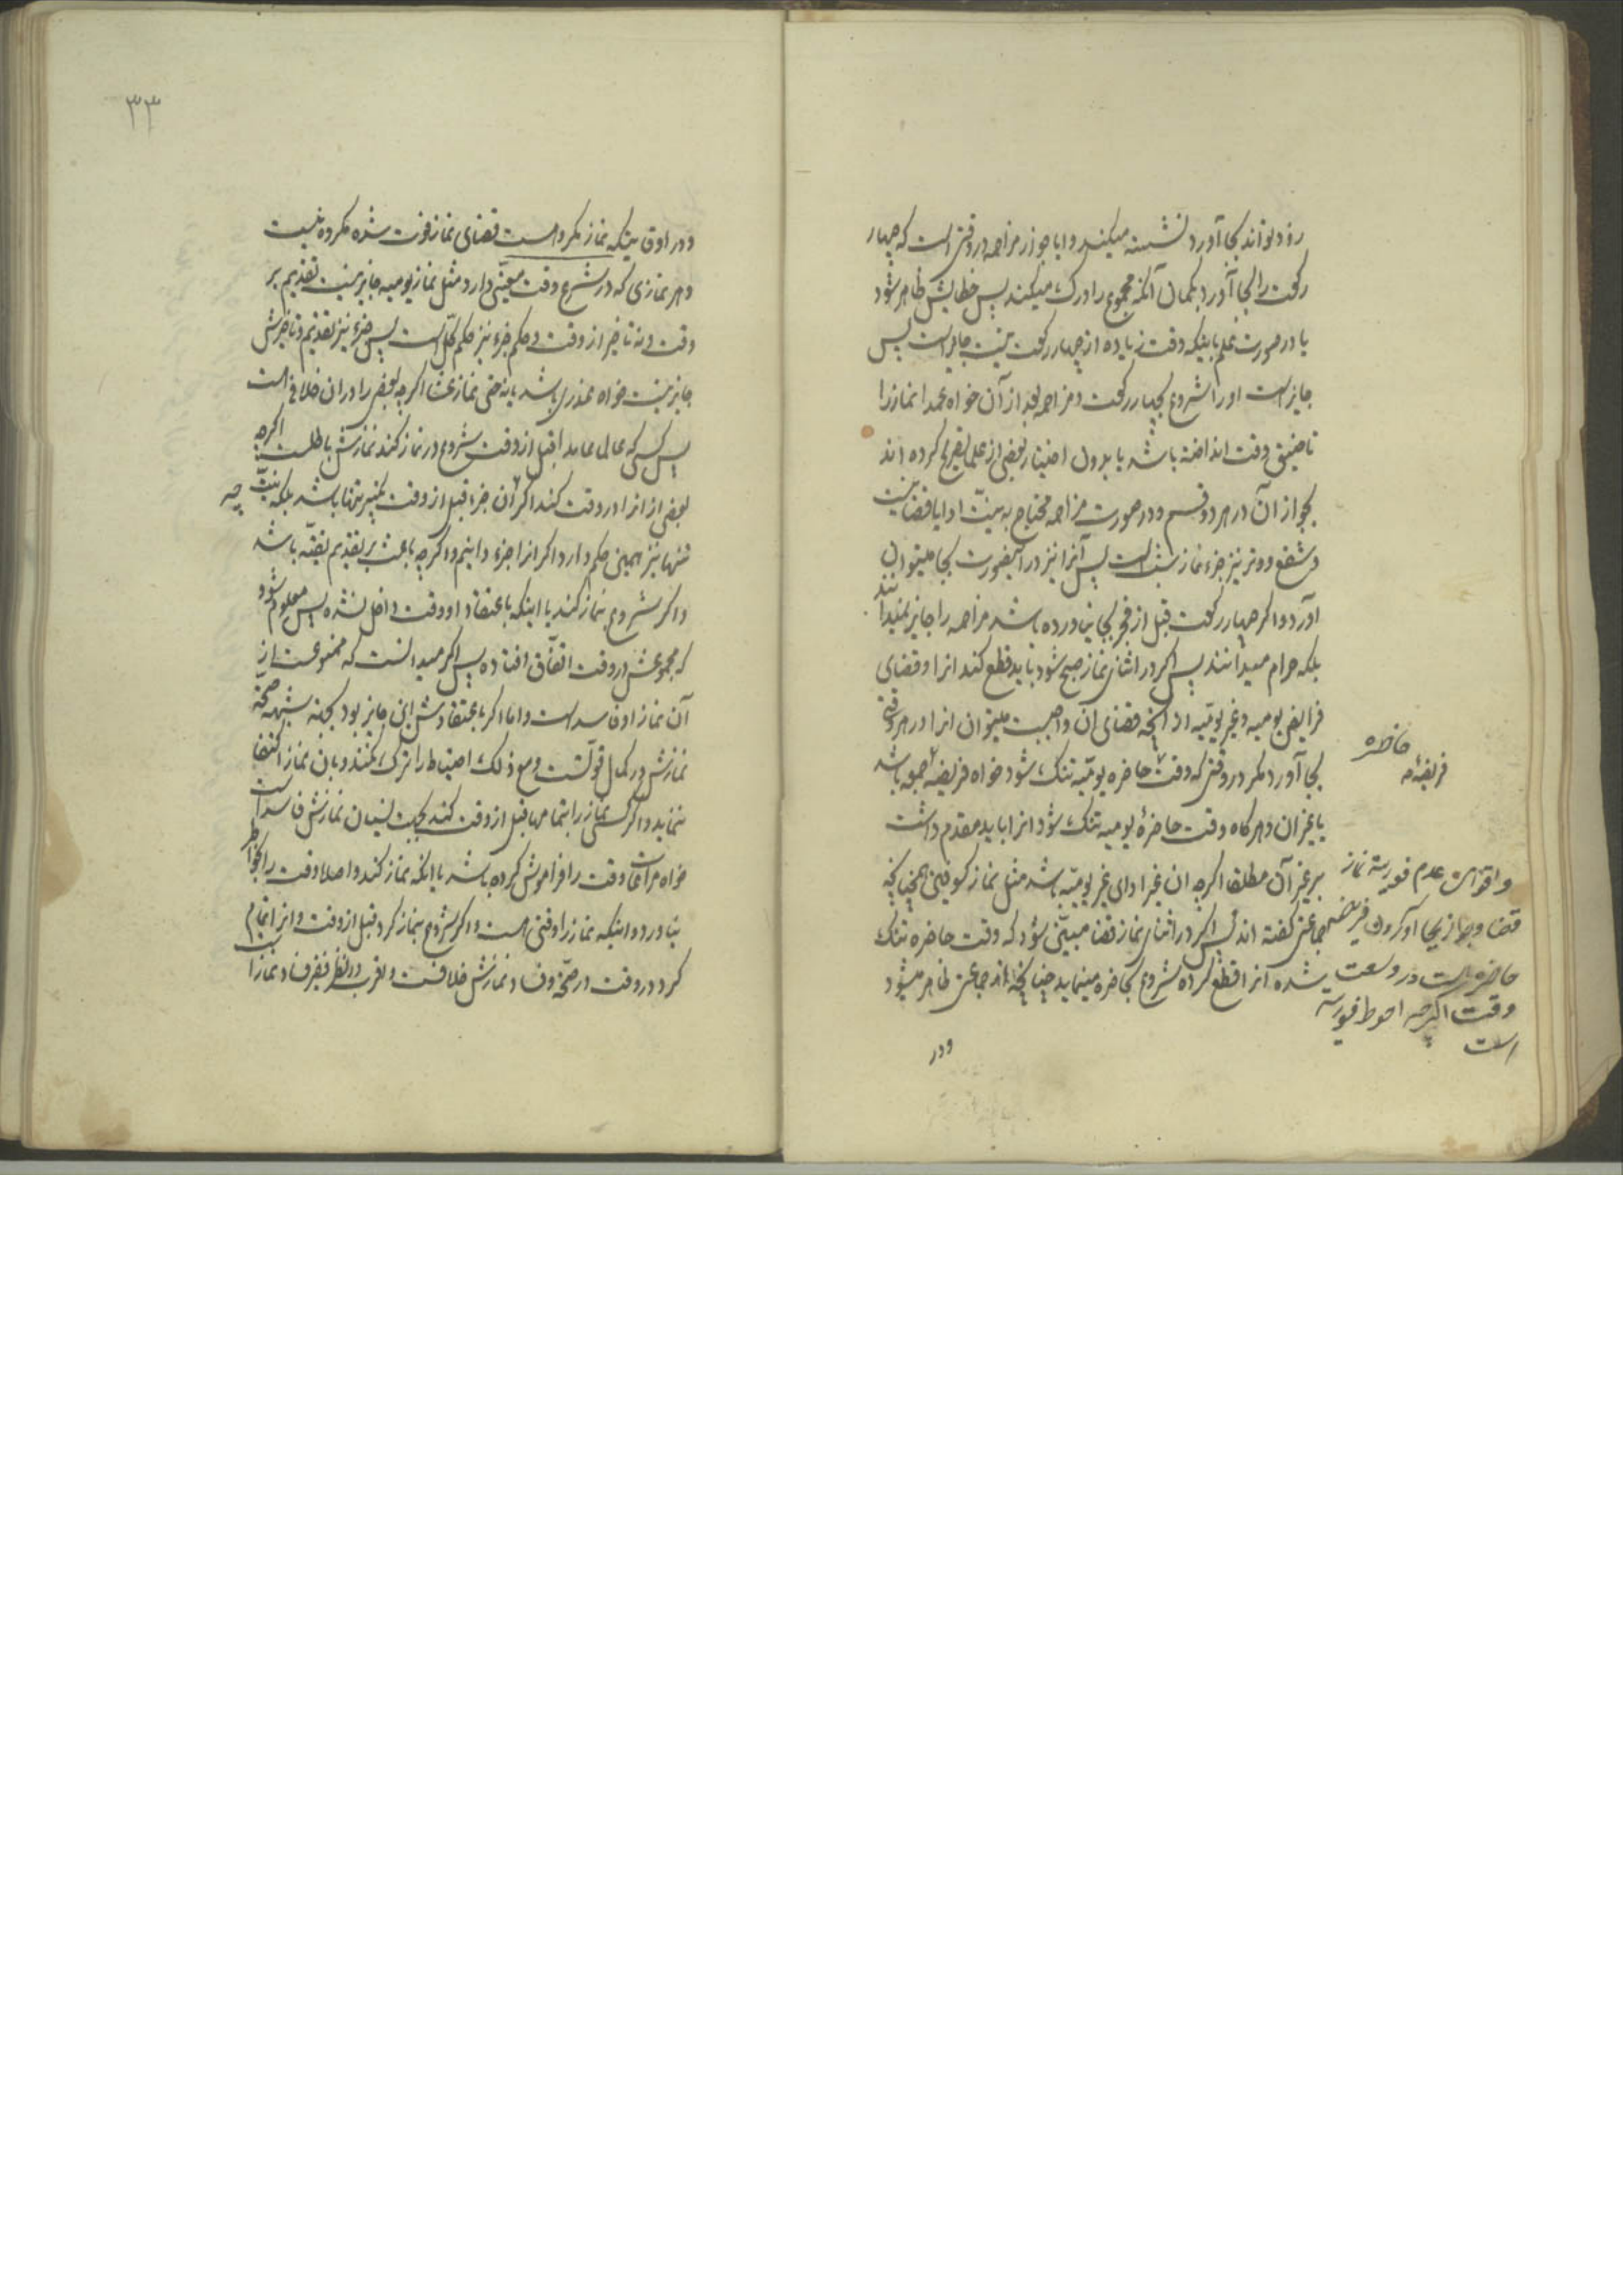 زود تواند بجا آورد نشسته میکند و ایا جواز مزاحمه در وقتی است که چهار
رکعت را بجا آورد بگمان آنکه مجموع را درک میکند پس خطایش ظاهر شود
یا در صورت علم باینکه وقت زیاده از چهار رکعت نیست جایز است پس
جایز است او را شروع بچهار رکعت و مزاحمه بعد از آن خواه عمدا نماز را
تا ضیق وقت انداخته باشد یا بدون اختیار بعضی از علما تصریح کرده اند
بجواز آن در هر دو قسم و در صورت مزاحمه محتاج به نیت ادا یا قضا نیست
و شفع و وتر نیز جزء نماز شب است پس آنرا نیز در اینصورت بجا میتوان
آورد و اگر چهار رکعت قبل از فجر بجا نیاورده باشد مزاحمه را جایز نمیدانند
بلکه حرام میدانند پس اگر در اثنای نماز صبح شود باید قطع کند انرا و قضای
فرایض یومیه و غیر یومیه از آنچه قضای ان واجبست میتوان انرا در هر وقتی
بجا آورد مگر در وقتی که وقت حاضره یومیه تنک شود خواه فریضه جمعه باشد
یا غیر ان و هرکاه وقت حاضرهٔ یومیه تنک شود انرا باید مقدم داشت
بر غیر آن مطلقا اگرچه ان غیر ادای غیر یومیه باشد مثل نماز کسوفین همچنانچه
جماعتی گفته اند پس اگر در اثنای نماز قضا مبین شود که وقت حاضره تنک
شده انرا قطع کرده شروع بحاضره مینماید چنانچه از جماعتی ظاهر میشود
ودر
حاضره
فریضهٔ
و اقوی عدم فوریة نماز
قضا و جواز بجا آوردن فریضه
حاضره است در وسعت
وقت اگرچه احوط فوریة
است
٣٣
و در اوقاتیکه نماز مکروهست قضای نماز فوت شده مکروه نیست
و هر نمازی که در شرع وقت معینی دارد مثل نماز یومیه جایز نیست تقدیم بر
وقت و نه تاخیر از وقت و حکم جزء نیز حکم کل است پس جزء نیز تقدیم و تاخیرش
جایز نیست خواه عذری باشد یا نه حتی نماز عشا اگرچه بعضی را در ان خلافی است
پس کسی که عالما عامدا قبل از وقت شروع در نماز کند نمازش باطلست اگرچه
بعضی از انرا در وقت کند اگرچه آن جزء قبل از وقت تکبیر تنها باشد بلکه نیت
تنها نیز همین حکم دارد اگر انرا جزء دانیم و اگرچه باعث بر تقدیم تقیه باشد
و اگر شروع بنماز کند با اینکه باعتقاد او وقت داخل نشده پس معلوم شود
که مجموعش در وقت اتفاق افتاده پس اگر میدانست که ممنوعست از
آن نماز او فاسد است و اما اگر باعتقادش این جایز بود بجهة شبهه صحة
نمازش در کمال قوتست و مع ذلک احتیاط را ترک نکنند و بان نماز اکتفا
ننماید و اگر کسی نماز را بتمامها قبل از وقت کند بجهت نسیان نمازش فاسد است
خواه مراعات وقت را فراموش کرده باشد یا انکه نماز کند و اصلا وقت را بخاطر
نیاورد و اینکه نماز را وقتی هست و اگر شروع بنماز کرد قبل از وقت و انرا تمام
کرد در وقت در صحة و فساد نمازش خلافست و اقرب در نظر فقیر فساد نماز است